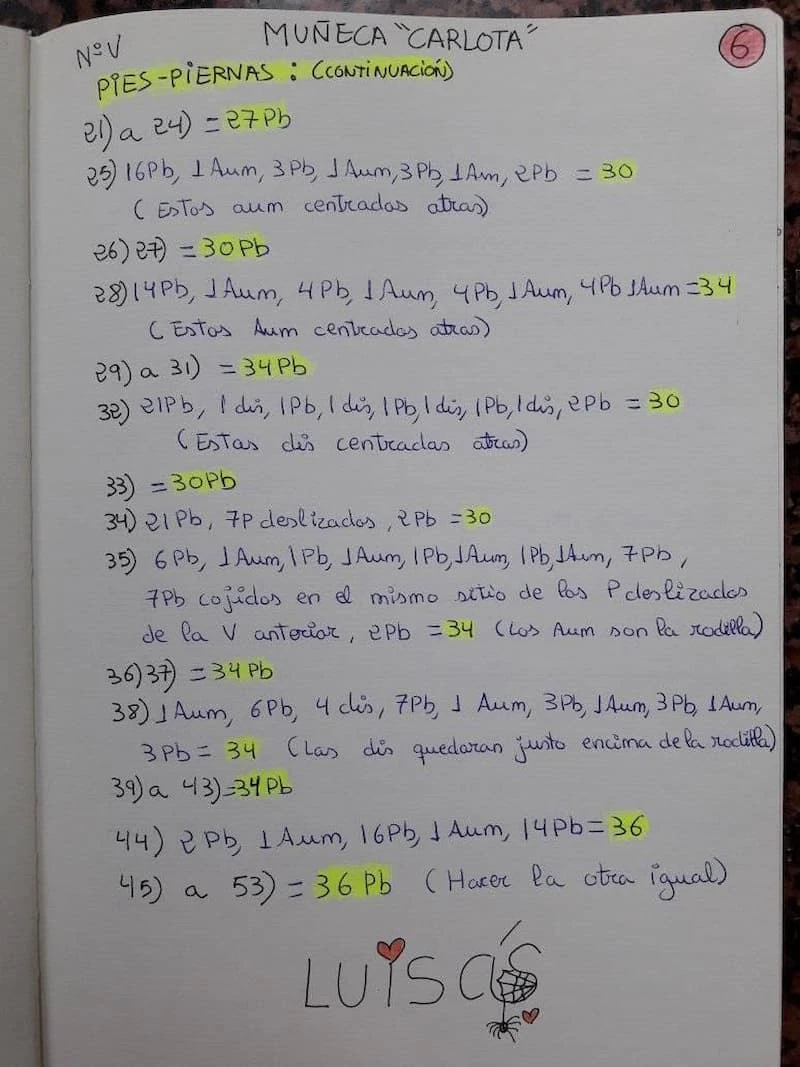 MUÑECA "CARLOTA"
6
NºV
PIES-PIERNAS : (CONTINUACIÓN)
21) a 24) = 27Pb
25) 16Pb, 1Aum, 3Pb, 1Aum, 3Pb, 1Am, 2Pb = 30
(Estos aum centrados atras)
26) 27) = 30Pb
28) 14Pb, 1Aum, 4Pb, 1Aum, 4Pb, 1Aum, 4Pb 1Aum = 34
(Estos Aum centrados atras)
29) a 31) = 34Pb
32) 21Pb, 1 dis, 1Pb, 1 dis, 1Pb, 1 dis, 1Pb, 1 dis, 2Pb = 30
(Estas dis centradas atras)
33) = 30Pb
34) 21Pb, 7P deslizados, 2Pb = 30
35) 6Pb, 1Aum, 1Pb, 1Aum, 1Pb, 1Aum, 1Pb, 1Aum, 7Pb,
7Pb cojidos en el mismo sitio de los P deslizados
de la V anterior, 2Pb = 34 (Los Aum son la rodilla)
36) 37) = 34Pb
38) 1Aum, 6Pb, 4 dis, 7Pb, 1 Aum, 3Pb, 1Aum, 3Pb, 1Aum,
3Pb = 34 (Las dis quedaran justo encima de la rodilla)
39) a 43) = 34Pb
44) 2Pb, 1Aum, 16Pb, 1Aum, 14Pb = 36
45) a 53) = 36Pb (Hacer la otra igual)
LUISA'S